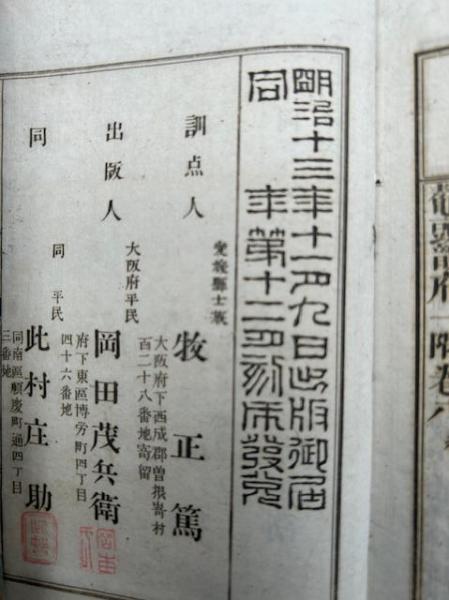 明治十三年十一月九日出版御届
同年第十二月刻成發兌
訓点人
愛媛縣士族
牧正篤
大阪府下西成郡曽根嵜村
百二十八番地寄留
出版人
大阪府平民
岡田茂兵衛
府下東區博労町四丁目
四十六番地
同
同平民
此村庄助
同南區順慶町通四丁目
三番地